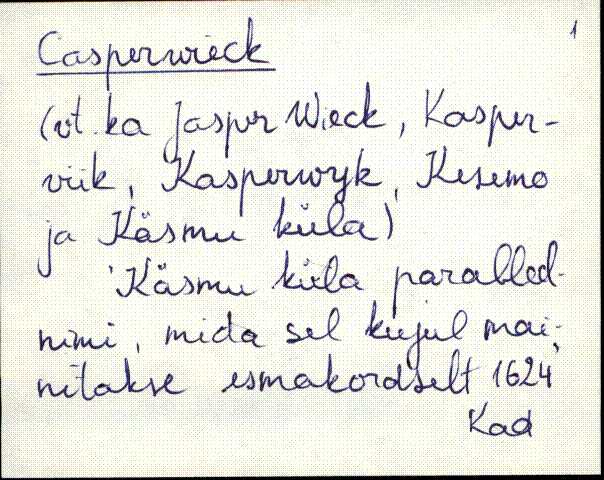 1
Casperwieck
(vt. ka Jasper Wieck, Kasper-
viik, Kasperwyk, Kesemo
ja Käsmu küla)
'Käsmu küla paralleel-
nimi, mida sel kujul mai-
nitakse esmakordselt 1624'
Kad